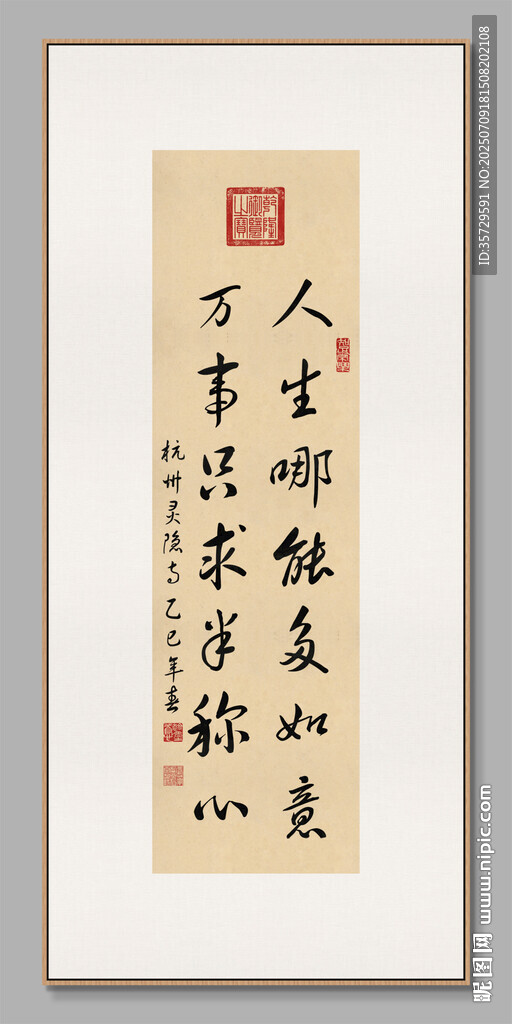 人生哪能多如意
万事只求半称心
杭州灵隐寺乙巳年春
乾隆御览之宝
ID:35729591 NO:20250709181508202108
昵图网 www.nipic.com